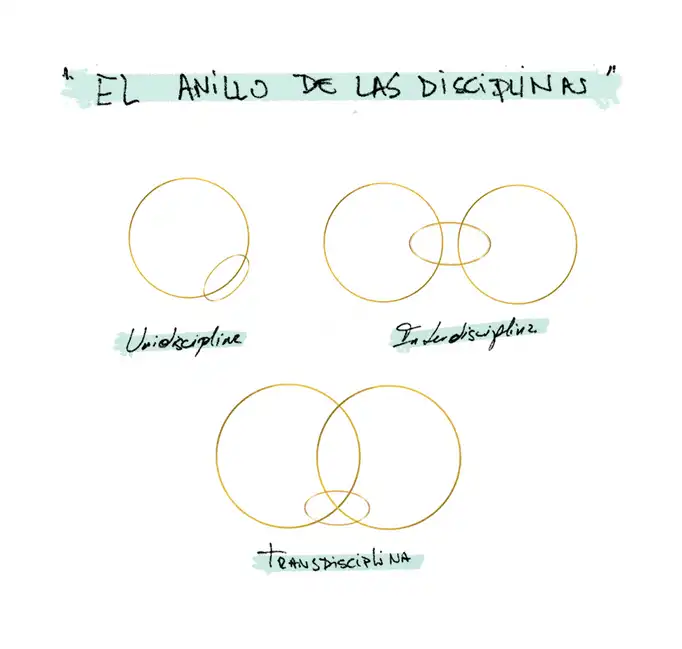 "EL ANILLO DE LAS DISCIPLINAS"
Unidisciplina
Interdisciplina
TRANSDISCIPLINA